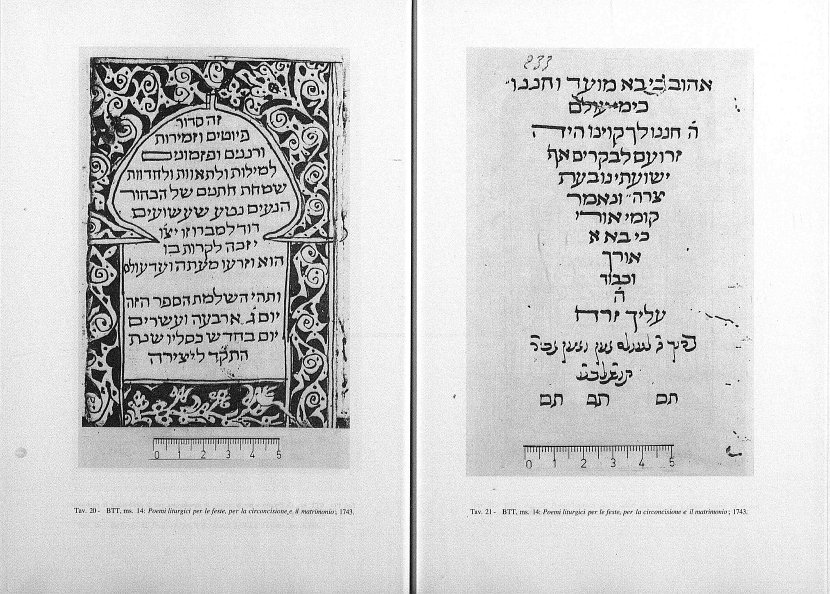 זה סדור
פיוטים וזמירות
ורננים ופזמונים
למילות ולתאוות ולחדוות
שמחת חתנים של הבחור
הנעים נטע שעשועים
דוד למברוזו יצו
יזכה לקרות בו
הוא וזרעו מעתה ועד עולם
ותהי השלמת הספר הזה
יום ג׳ ארבעה ועשרים
יום בחדש כסליו שנת
התקד ליצירה
0 1 2 3 4 5
Tav. 20 - BTT, ms. 14: Poemi liturgici per le feste, per la circoncisione e il matrimonio; 1743.
233
אהוב כי בא מועד וחננו
כימי עולם
ה׳ חננו לך קוינו היה
זרועם לבקרים אף
ישועתינו בעת
צרה׳ ונאמר
קומי אורי
כי בא א
אורך
וכבוד
ה׳
עליך זרח
תם תם תם
0 1 2 3 4 5
Tav. 21 - BTT, ms. 14: Poemi liturgici per le feste, per la circoncisione e il matrimonio; 1743.